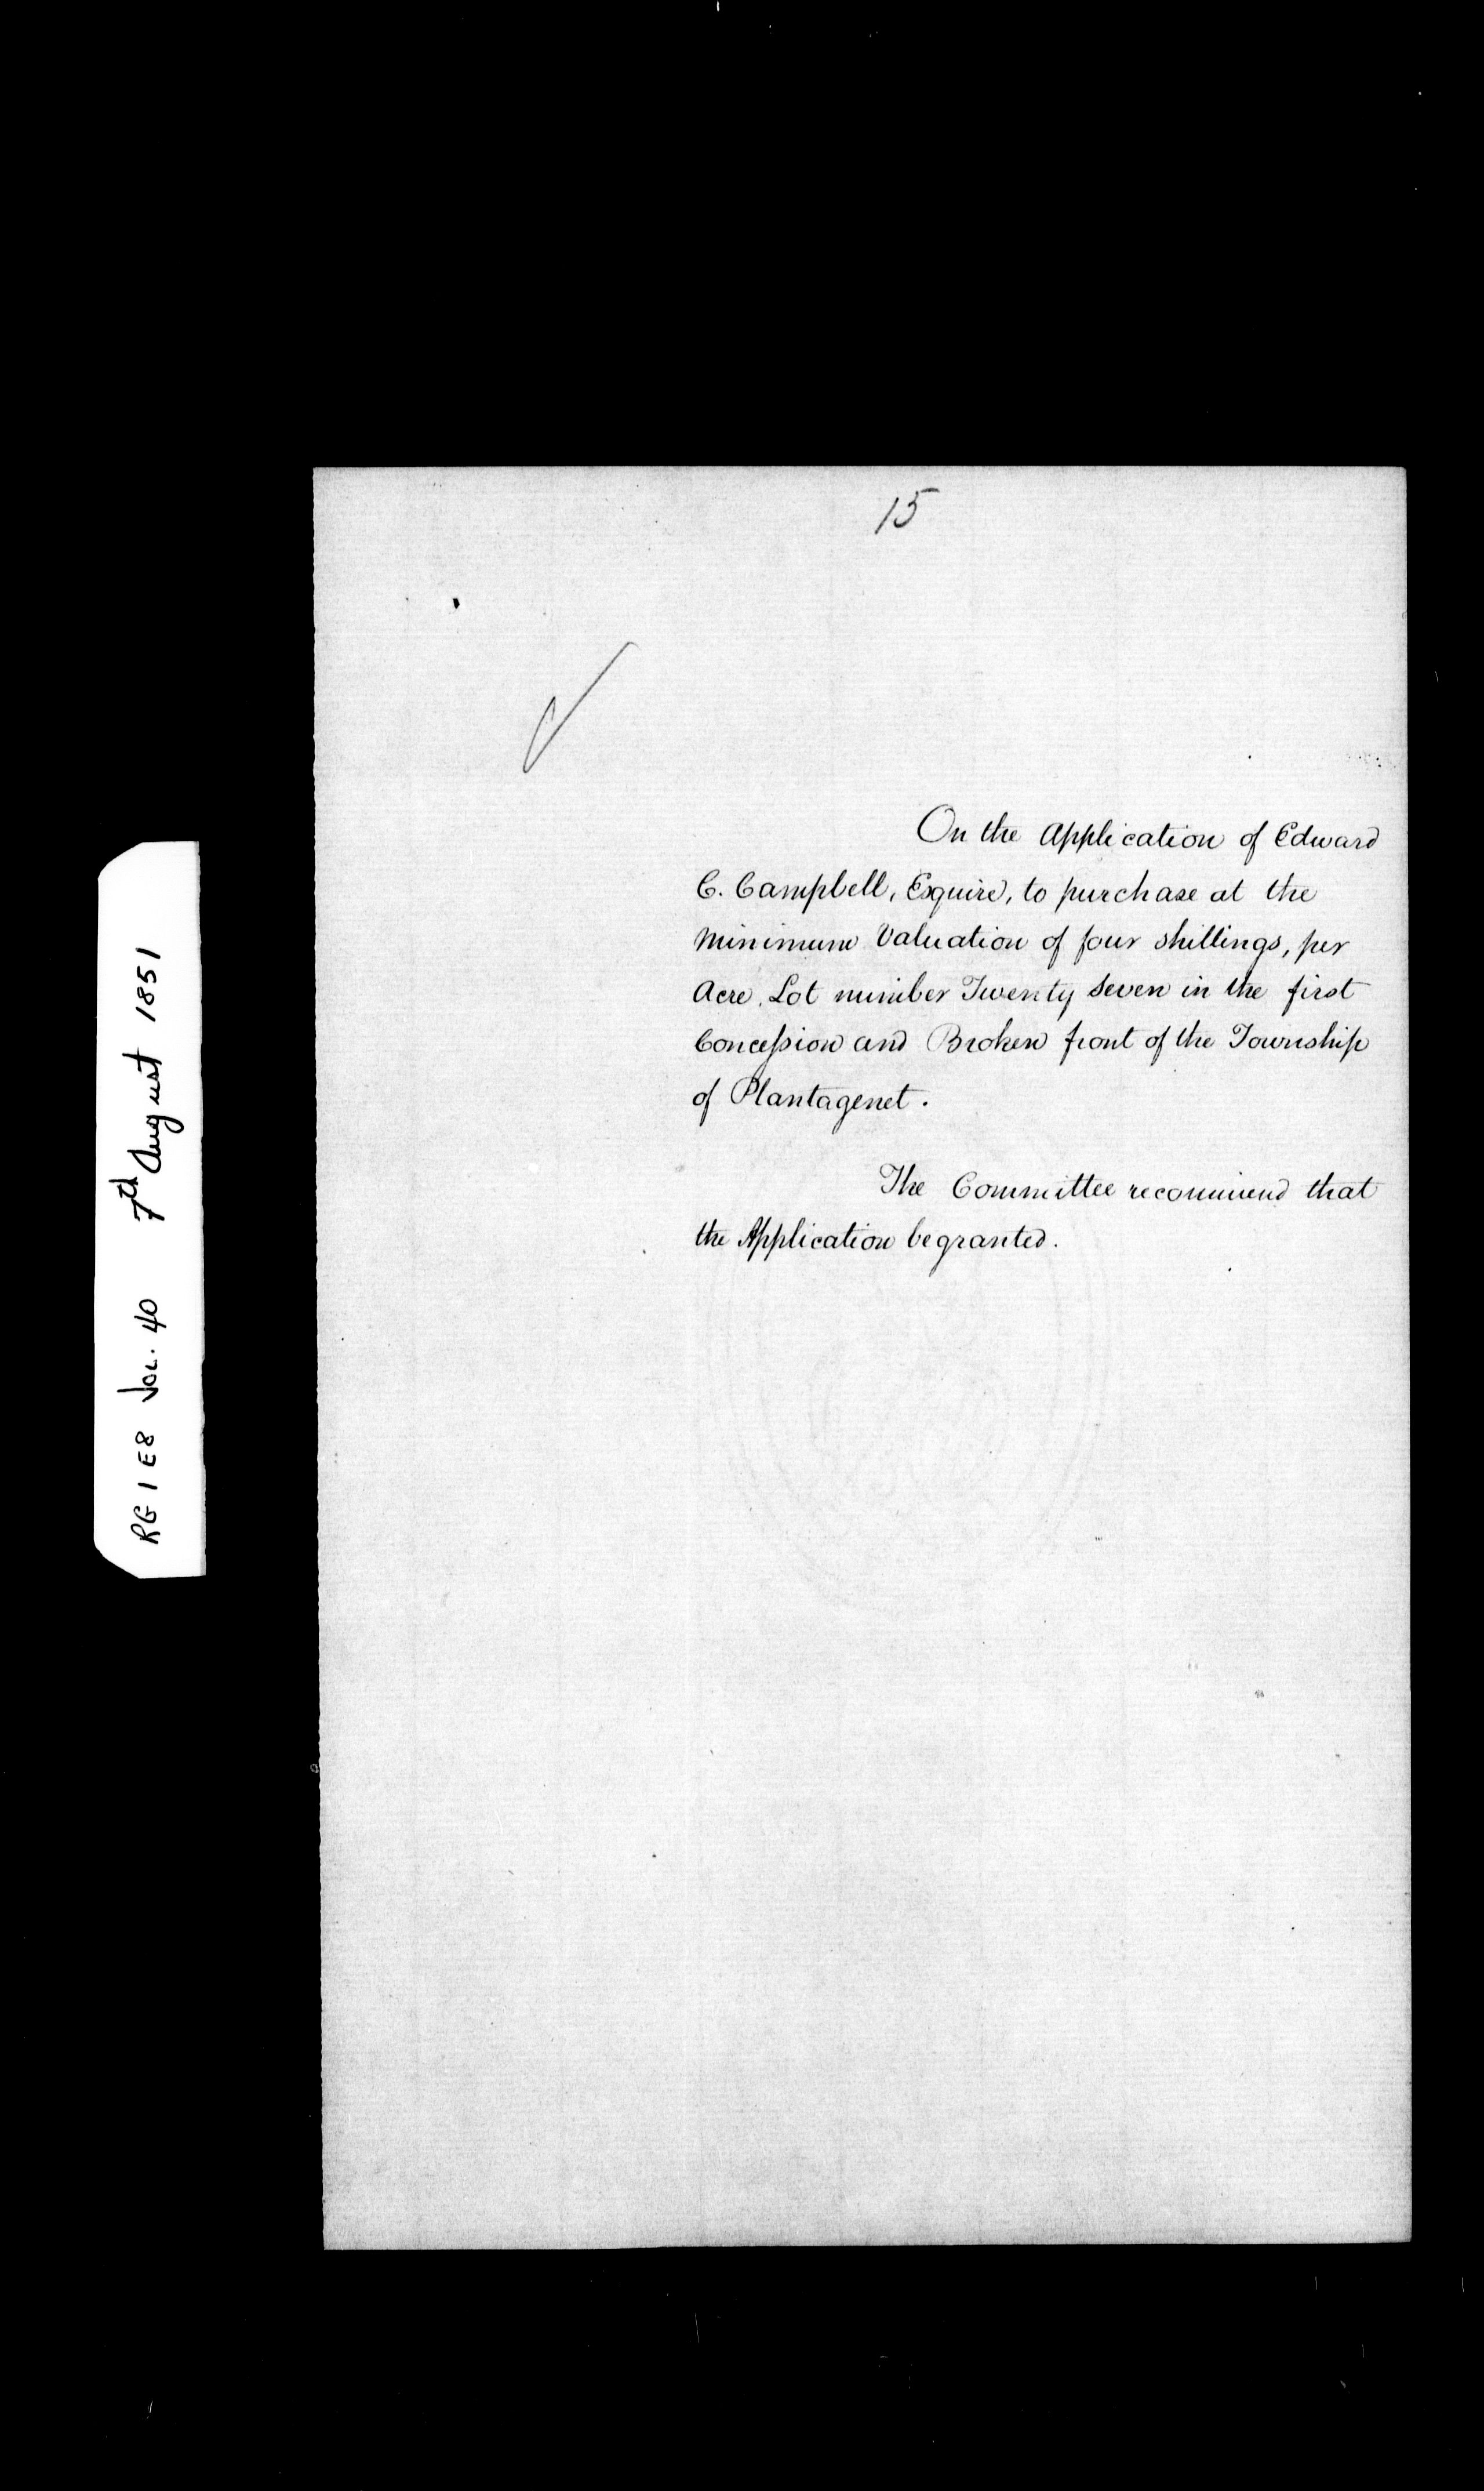 15
On the Application of Edward
C. Campbell, Esquire, to purchase at the
Minimum Valuation of four shillings, per
Acre. Lot number Twenty Seven in the first
Concession and Broken front of the Township
of Plantagenet.
The Committee recommend that
the Application be granted.
RG 1 E8 Vol. 40 7th August 1851